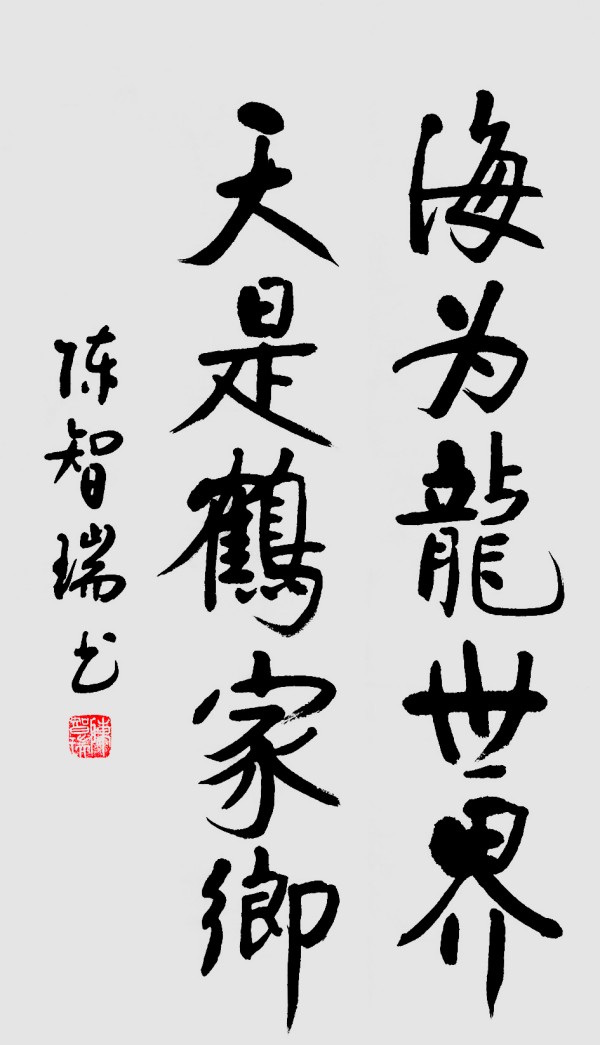 海为龍世界
天是鶴家鄉
陈智瑞书
陳智瑞